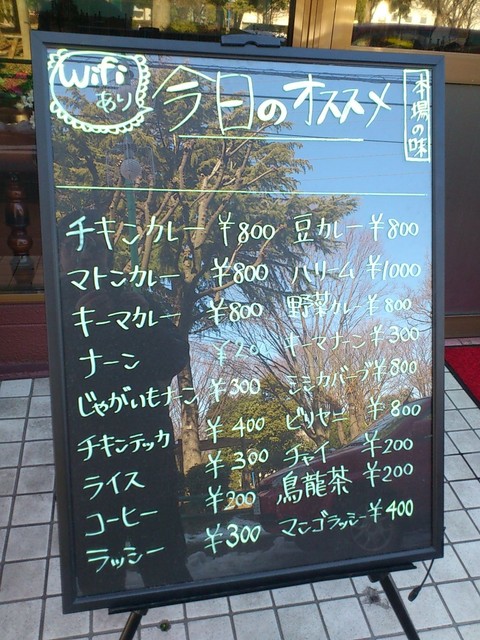 Wifi
あり
今日のオススメ
本場の味
チキンカレー ¥800
マトンカレー ¥800
キーマカレー ¥800
ナーン
じゃがいもナーン ¥300
チキンテッカ ¥400
ライス ¥300
コーヒー ¥200
ラッシー ¥300
豆カレー ¥800
ハリーム ¥1000
野菜カレー ¥800
キーマナーン ¥300
シシカバーブ ¥800
ビリヤニ ¥800
チャイ ¥200
烏龍茶 ¥200
マンゴラッシー ¥400